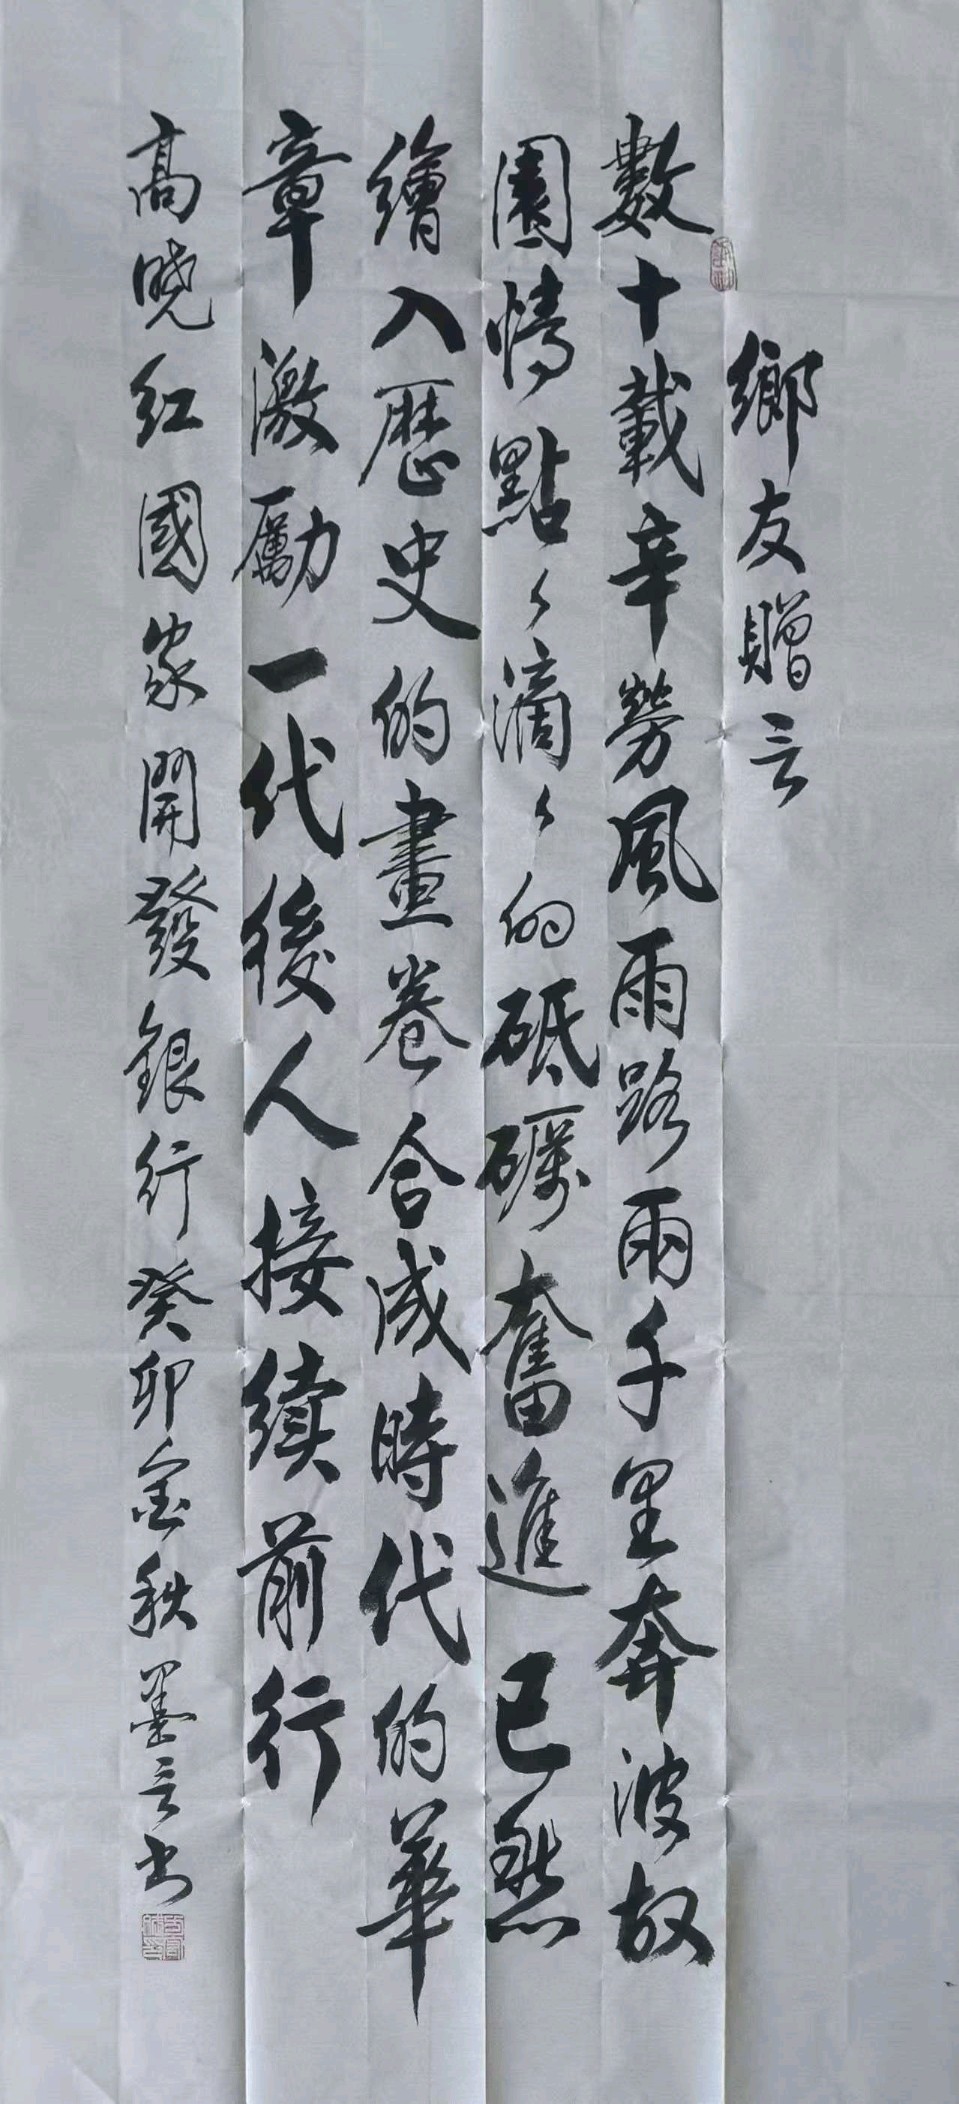 鄉友贈言
數十載辛勞風雨路雨千里奔波故
園情點々滴々的砥礪奮進已然
繪入歷史的畫卷合成時代的華
章激勵一代後人接續前行
高曉红國家開發銀行癸卯金秋墨言书